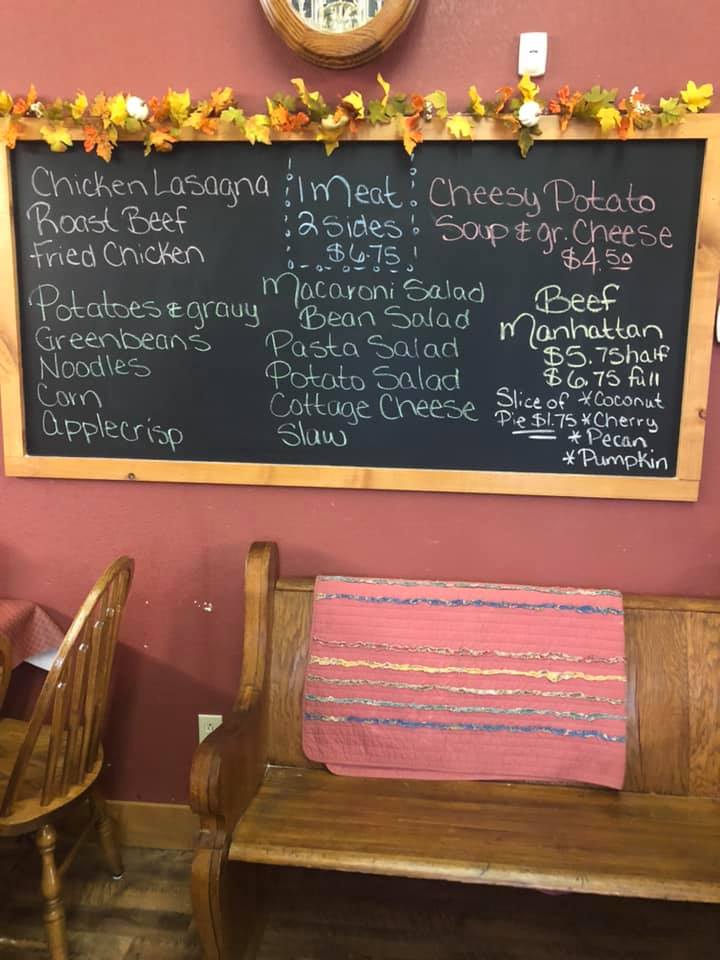 Chicken Lasagna
Roast Beef
Fried Chicken
Potatoes & gravy
Greenbeans
Noodles
Corn
Applecrisp
1 Meat
2 Sides
$6.75
Macaroni Salad
Bean Salad
Pasta Salad
Potato Salad
Cottage Cheese
Slaw
Cheesy Potato
Soup & gr. Cheese
$4.50
Beef
Manhattan
$5.75 half
$6.75 full
Slice of *Coconut
Pie $1.75 *Cherry
*Pecan
*Pumpkin